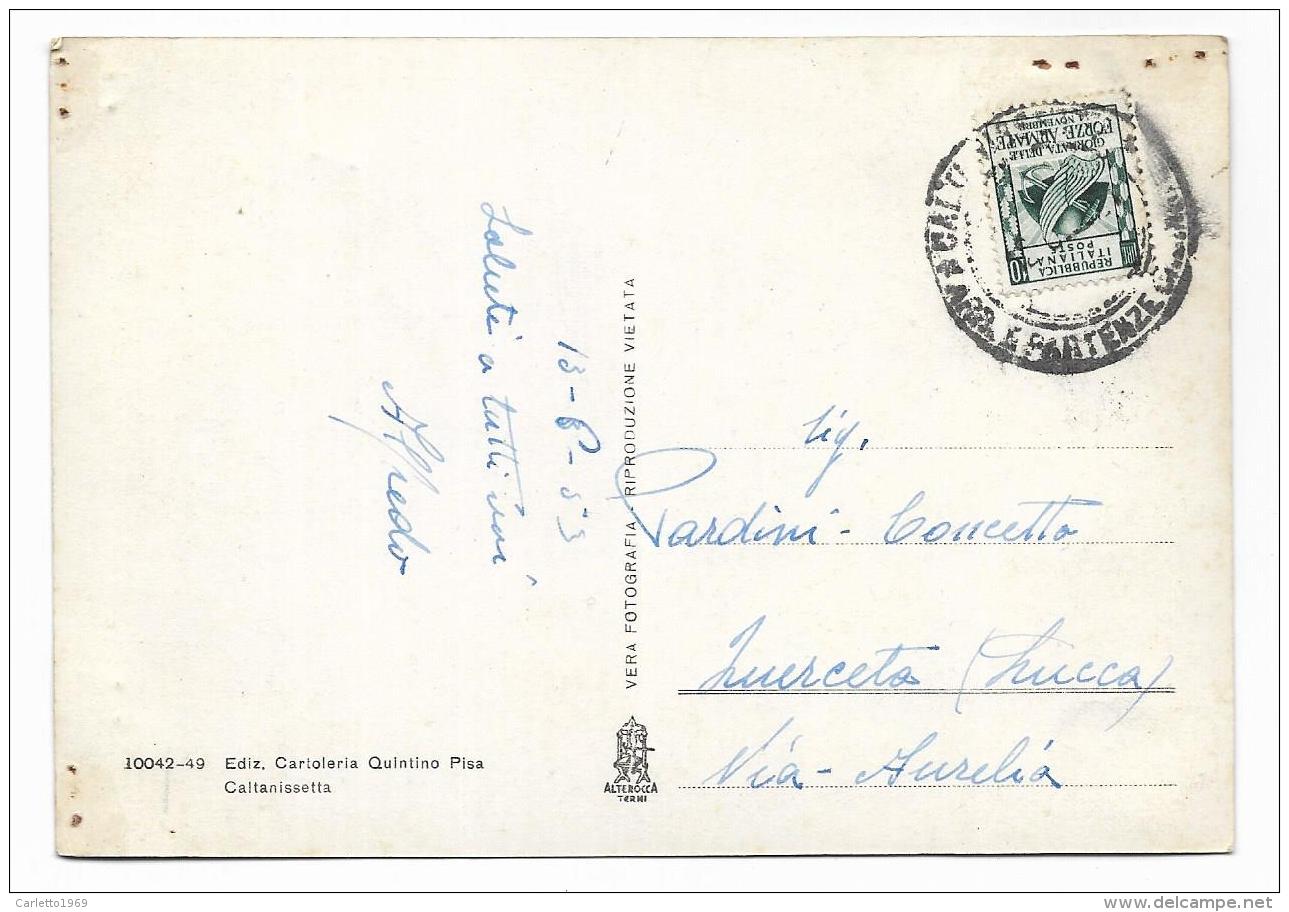 Saluti a tutti voi
Alfredo
13-6-53
VERA FOTOGRAFIA - RIPRODUZIONE VIETATA
10042-49 Ediz. Cartoleria Quintino Pisa
Caltanissetta
ALTEROCCA
TERNI
REPUBBLICA
ITALIANA
POSTE
10
GIORNATA DELLE
FORZE ARMATE
4 NOVEMBRE
ARR. E PARTENZE
Sig.
Pardini - Concetto
Querceta (Lucca)
Via - Aurelia
Carletto1969
delcampe.net